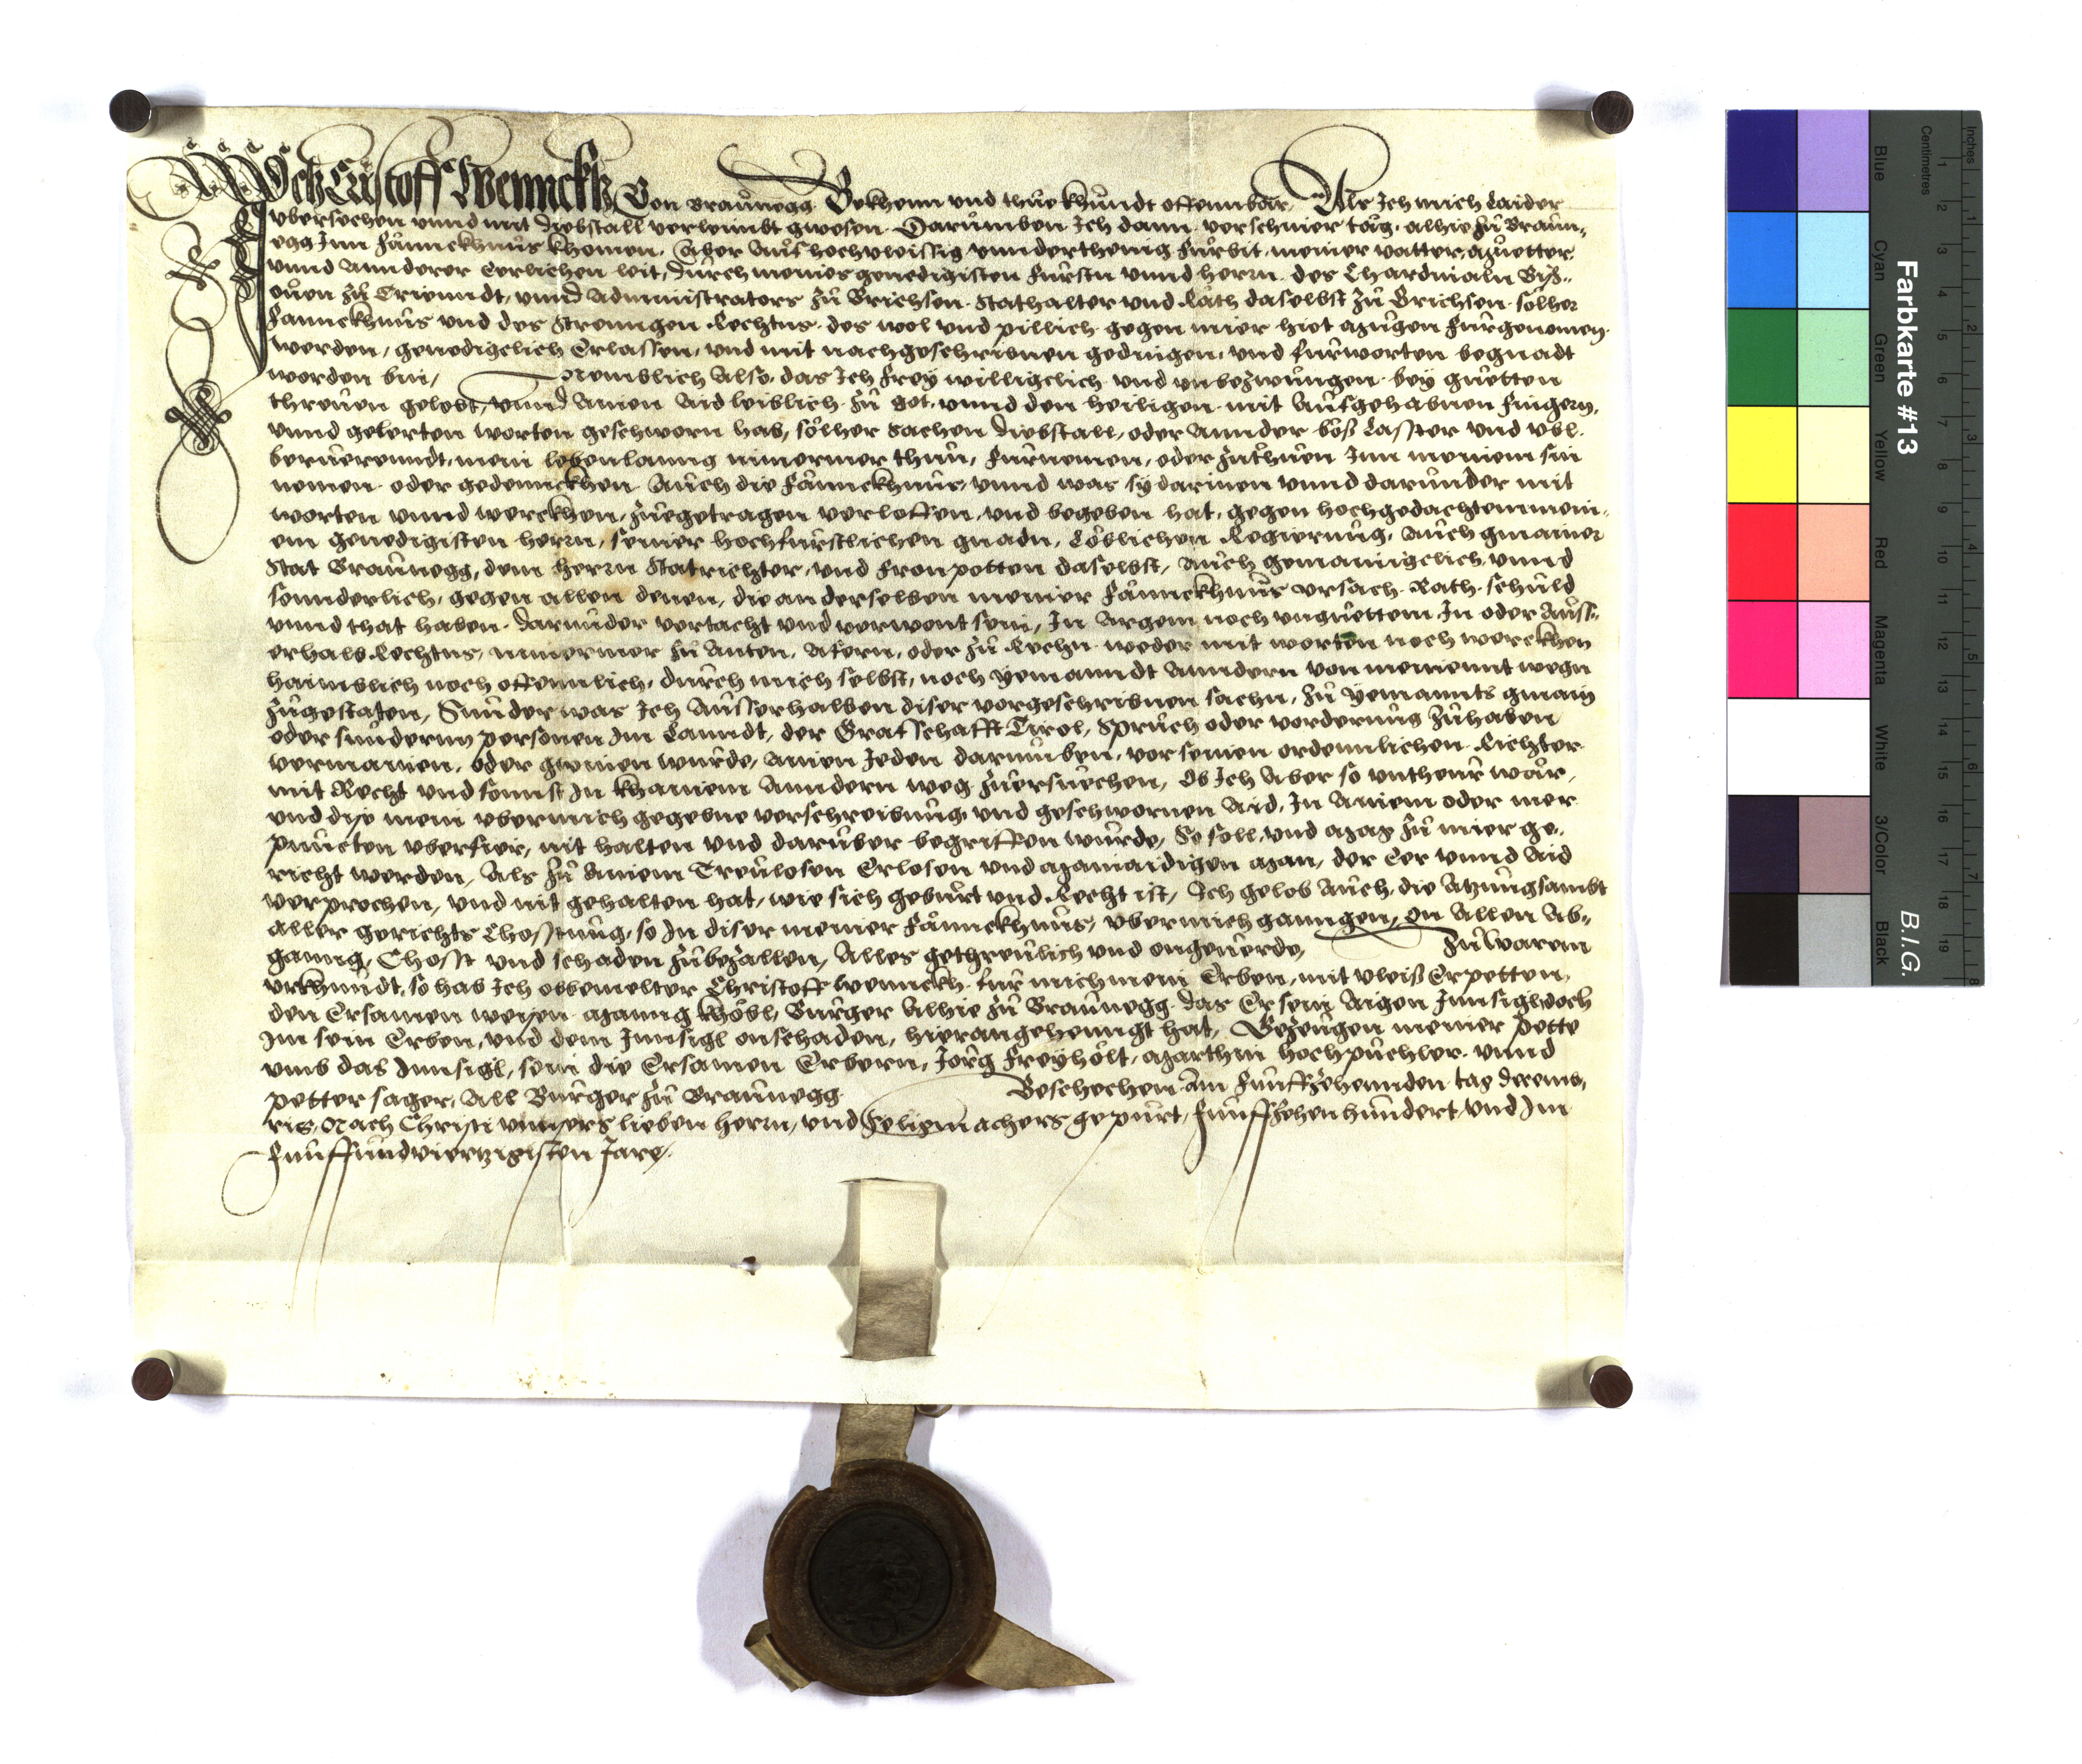 Ich Cristoff Wennckh Von Braunegg Bekhenn und thue khundt offennbar, Als Ich mich Laider
ubersechen unnd mit Diebstall verleimbt gwesen. Darumben Ich dann verschiner tåg, alhie zu Braun„
egg Inn fånnckhnus khomen. Aber aus hochvleissig unnderthenig furbit, meiner vatter, Muetter
unnd annderer Eerlichen leit, Durch meines genedigisten fursten unnd herrn des Chardinaln Bisch„
ouen zu Trienndt, unnd Administrators zu Brichsen. Stathalter und Råth daselbst zu Brichsen. solher
fannckhnus und des Strenngen Rechtns. des wol und pillich gegen mier hiet mugen furgenomen
werden, genedigelich Erlassen, und mit nachgeschribnen gedingen, und furworten begnadt
worden bin, Nemblich Also, das Ich frey willigelich und unbezwungen bey guetten
threuen gelobt, unnd ainen Aid leiblich zu got, unnd den heiligen mit aufgehabnen fingern,
unnd gelerten worten geschworn hab, solher sachen Diebstall, oder annder böß Laster und ubl
beruerenndt, mein lebenlanng nimermer thun, furnemen, oder zuthuen Inn meinem sin
nemen oder gedennckhen Auch die fånnckhnus, unnd was sy darinen unnd darunder mit
worten unnd werckhen, zuegetragen verloffen, und begeben hat, gegen hochgedachtem mein„
em genedigisten herrn, seiner hochfurstlichen gnadn, Löblichen Regierung, Auch gmainer
Stat Braunegg, dem herrn Statrichter, und fronpotten daselbst, Auch gemainigelich unnd
sonnderlich, gegen allen denen, die an derselben meiner fånnckhnus ursach. Rath. schuld
unnd that haben. darunder vertacht und verwont sein, In Argem noch unguettem. In oder auss„
erhalb Rechtns, nimermer zu Anten, Åfern, oder zu Rechn weder mit worten noch werckhen
haimblich noch offennlich, durch mich selbst, noch yemanndt anndern von meinennt wegn
zugestaten, Sunder was Ich ausserhalben diser vorgeschribnen sachn, zu yemannts gmain
oder sundernn personen Im Lanndt, der Grafschafft Tirol, Spruch oder vorderung zuhaben
vermainen, oder gwinen wurde, ainen Jeden darumben, vor seinen ordennlichen Richter
mit Recht und sonnst In khainem anndern weg zuersuechen, Ob Ich Aber so untheur wår,
und dise mein uber mich gegebne verschreibung und geschwornen Aid, In ainem oder mer
puncten uberfier, nit halten und daruber begriffen wurde, So soll und mag zu mier ge„
richt werden, Als zu ainem Treulosen Erlosen und Mainaidigen Man, der Eer unnd Aid
verprochen, und nit gehalten hat, wie sich geburt und Recht ist, Ich gelob Auch, die Atzung sambt
aller gerichts Chosstung, so In diser meiner fånnckhnus, uber mich ganngen, On Allen Ab„
ganng, Chosst und schaden zubezallen, Alles gethreulich und ongeuerde, Zu Warem
urkhundt, so hab Ich obbemelter Christoff Wennckh fur mich mein Erben, mit vleiß Erpetten,
den Ersamen weisen Manng khöbl, Burger Alhie zu Braunegg das Er sein Aigen Innsigl doch
Im sein Erben, und dem Innsigl onschaden, hieran gehenngt hat, Gezeugen meiner pette
umb das Innsigl, sein die Ersamen Erbern, Jorg Freyhölt, Marthin hochpuchler unnd
petter sager, All Burger zu Braunegg Beschechen Am funffzehennden tag Decemb„
ris, Nach Christi unnsers lieben herrn, und seligmachers gepurt, funffzehenhundert, und Im
funffundviertzigisten Jare.
Farbkarte #13
B.I.G.
Blue
Cyan
Green
Yellow
Red
Magenta
White
3/Color
Black
Centimetres
Inches
1 2 3 4 5 6 7 8 9 10 11 12 13 14 15 16 17 18 19
1 2 3 4 5 6 7 8